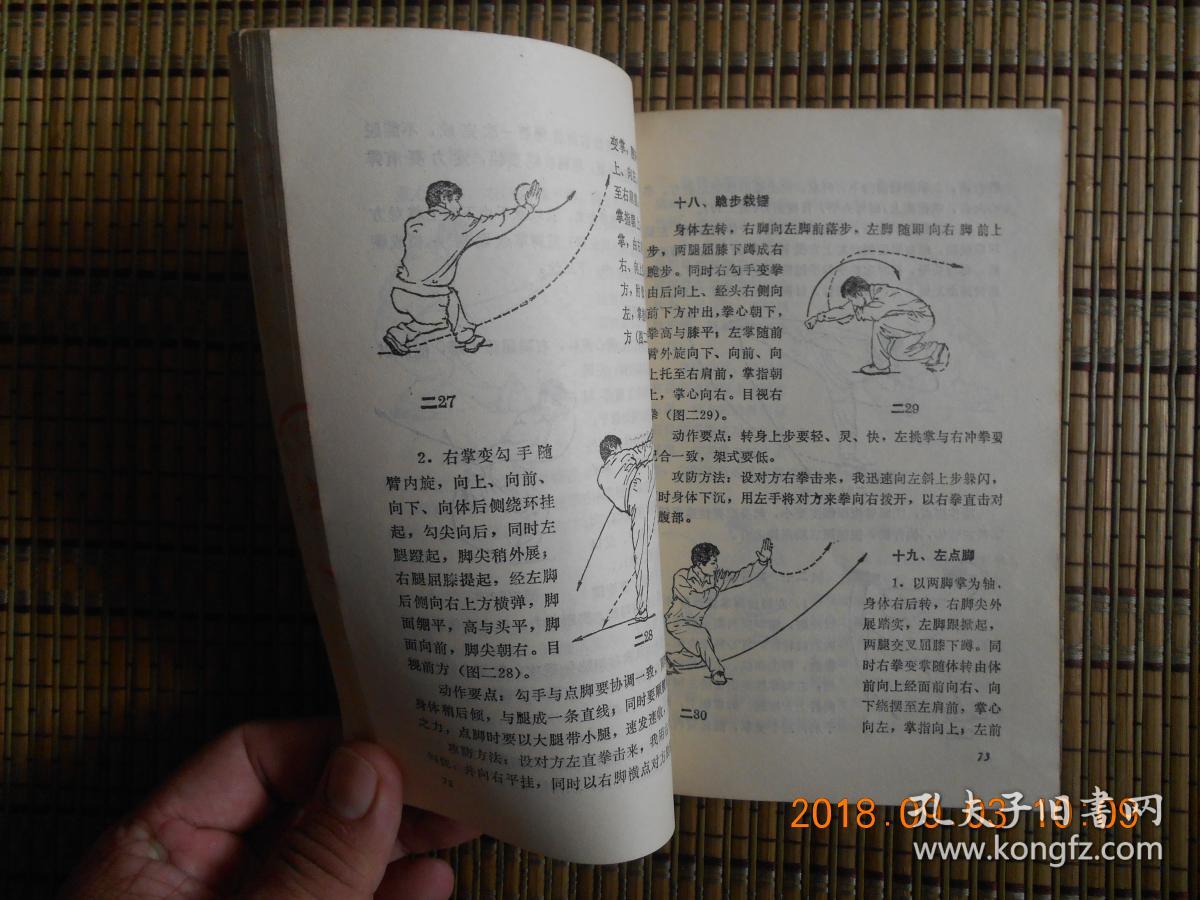 变掌，
上、向左
至右
掌指
掌，
右、
方，
左，
方（
二27
2．右掌变勾手随
臂内旋，向上、向前、
向下、向体后侧绕环挂
起，勾尖向后，同时左
腿蹬起，脚尖稍外展；
右腿屈膝提起，经左脚
后侧向右上方横弹，脚
面绷平，高与头平，脚
面向前，脚尖朝右。目
视前方（图二28）。
二28
动作要点：勾手与点脚要协调一致，
身体稍后倾，与腿成一条直线；同时要
之力，点脚时要以大腿带小腿，速发速收，
攻防方法：设对方左直拳击来，我
并向右平挂，同时以右脚横点对方
72
十八、跪步栽锤
身体左转，右脚向左脚前落步，左脚随即向右脚前上
步，两腿屈膝下蹲成右
跪步。同时右勾手变拳
由后向上、经头右侧向
前下方冲出，拳心朝下，
拳高与膝平；左掌随前
臂外旋向下、向前、向
上托至右肩前，掌指朝
上，掌心向右。目视右
拳（图二29）。
二29
动作要点：转身上步要轻、灵、快，左挑掌与右冲拳要
配合一致，架式要低。
攻防方法：设对方右拳击来，我迅速向左斜上步躲闪，
时身体下沉，用左手将对方来拳向右拨开，以右拳直击对
腹部。
十九、左点脚
1．以两脚掌为轴，
身体右后转，右脚尖外
展踏实，左脚跟掀起，
两腿交叉屈膝下蹲。同
时右拳变掌随体转由体
前向上经面前向右、向
下绕摆至左肩前，掌心
向左，掌指向上；左前
二30
73
2018.09.03 10:09
孔夫子旧书网
www.kongfz.com